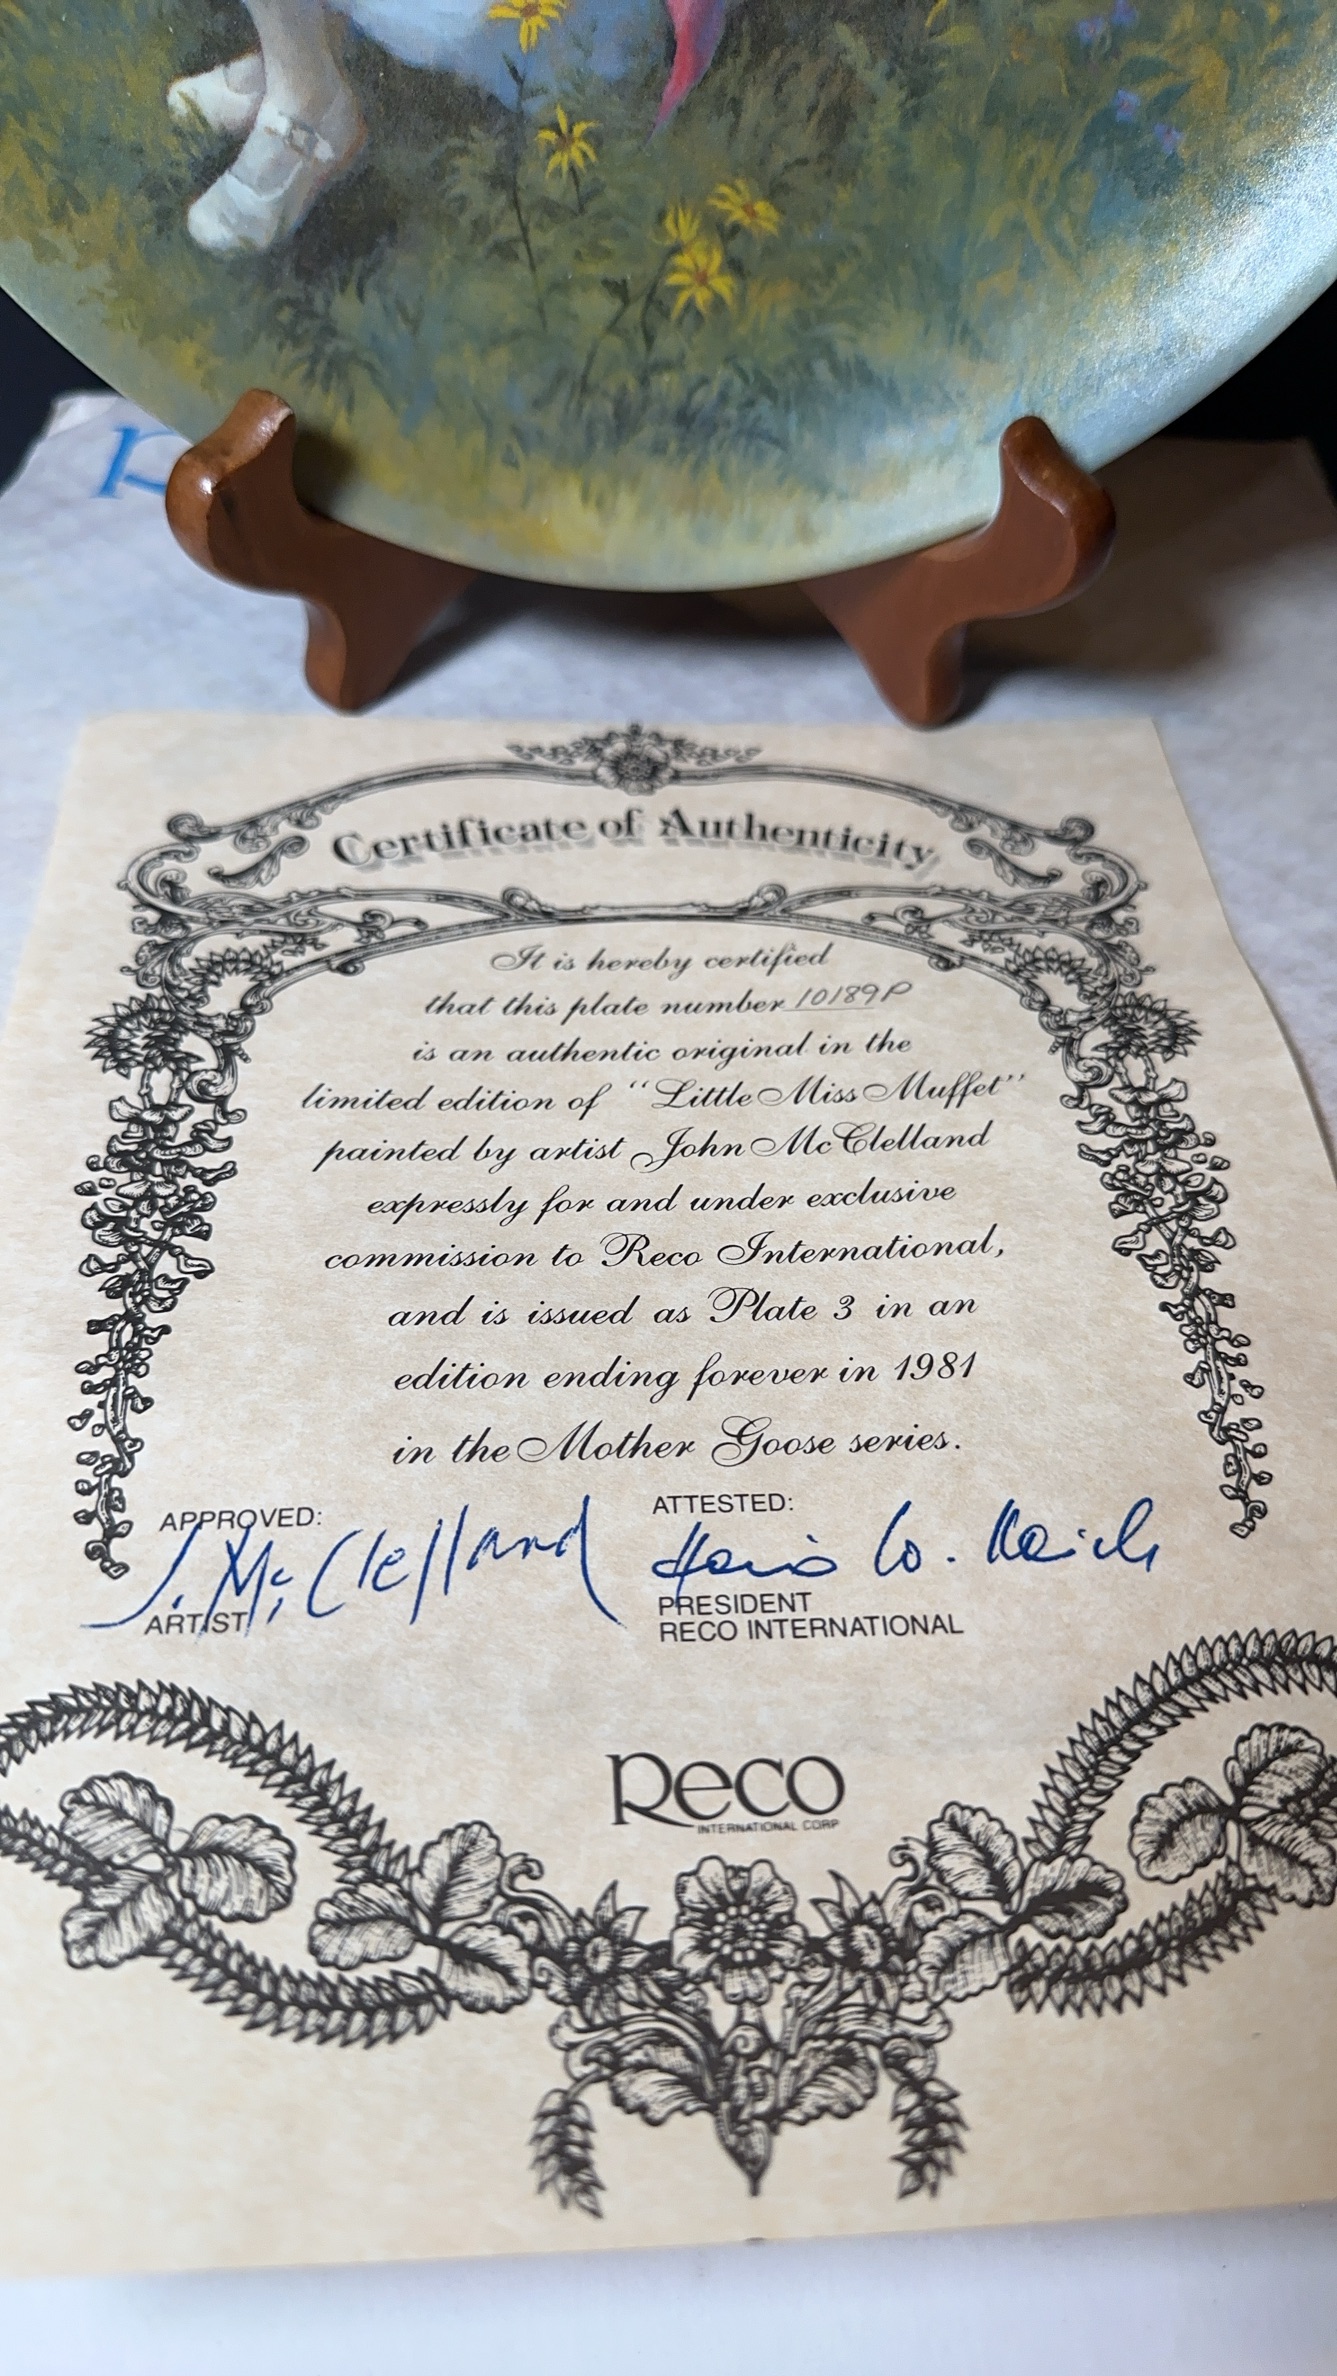 R
Certificate of Authenticity
It is hereby certified
that this plate number 10189P
is an authentic original in the
limited edition of "Little Miss Muffet"
painted by artist John McClelland
expressly for and under exclusive
commission to Reco International,
and is issued as Plate 3 in an
edition ending forever in 1981
in the Mother Goose series.
APPROVED: ATTESTED:
J. McClelland
ARTIST PRESIDENT
RECO INTERNATIONAL
Reco
INTERNATIONAL CORP